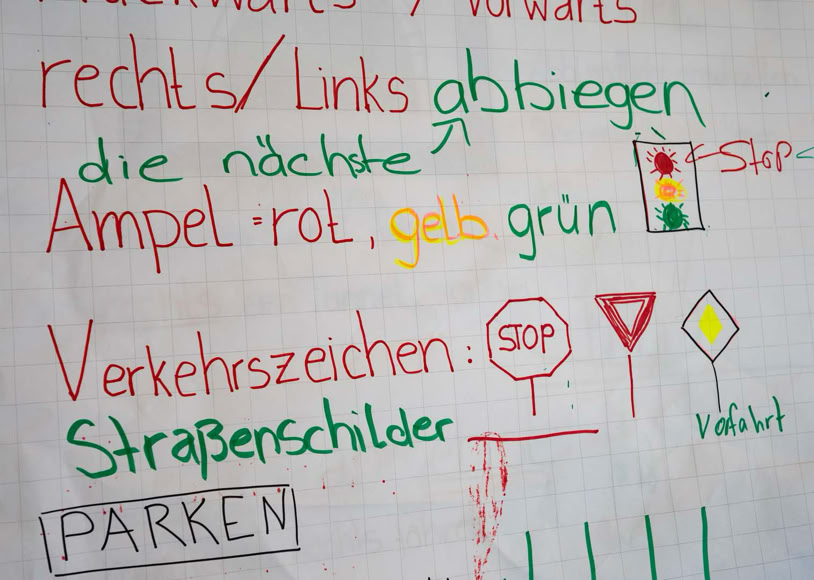 / vorwärts
rechts/Links abbiegen
die nächste
Stop
Ampel = rot, gelb. grün
Verkehrszeichen:
STOP
Vorfahrt
Straßenschilder
PARKEN